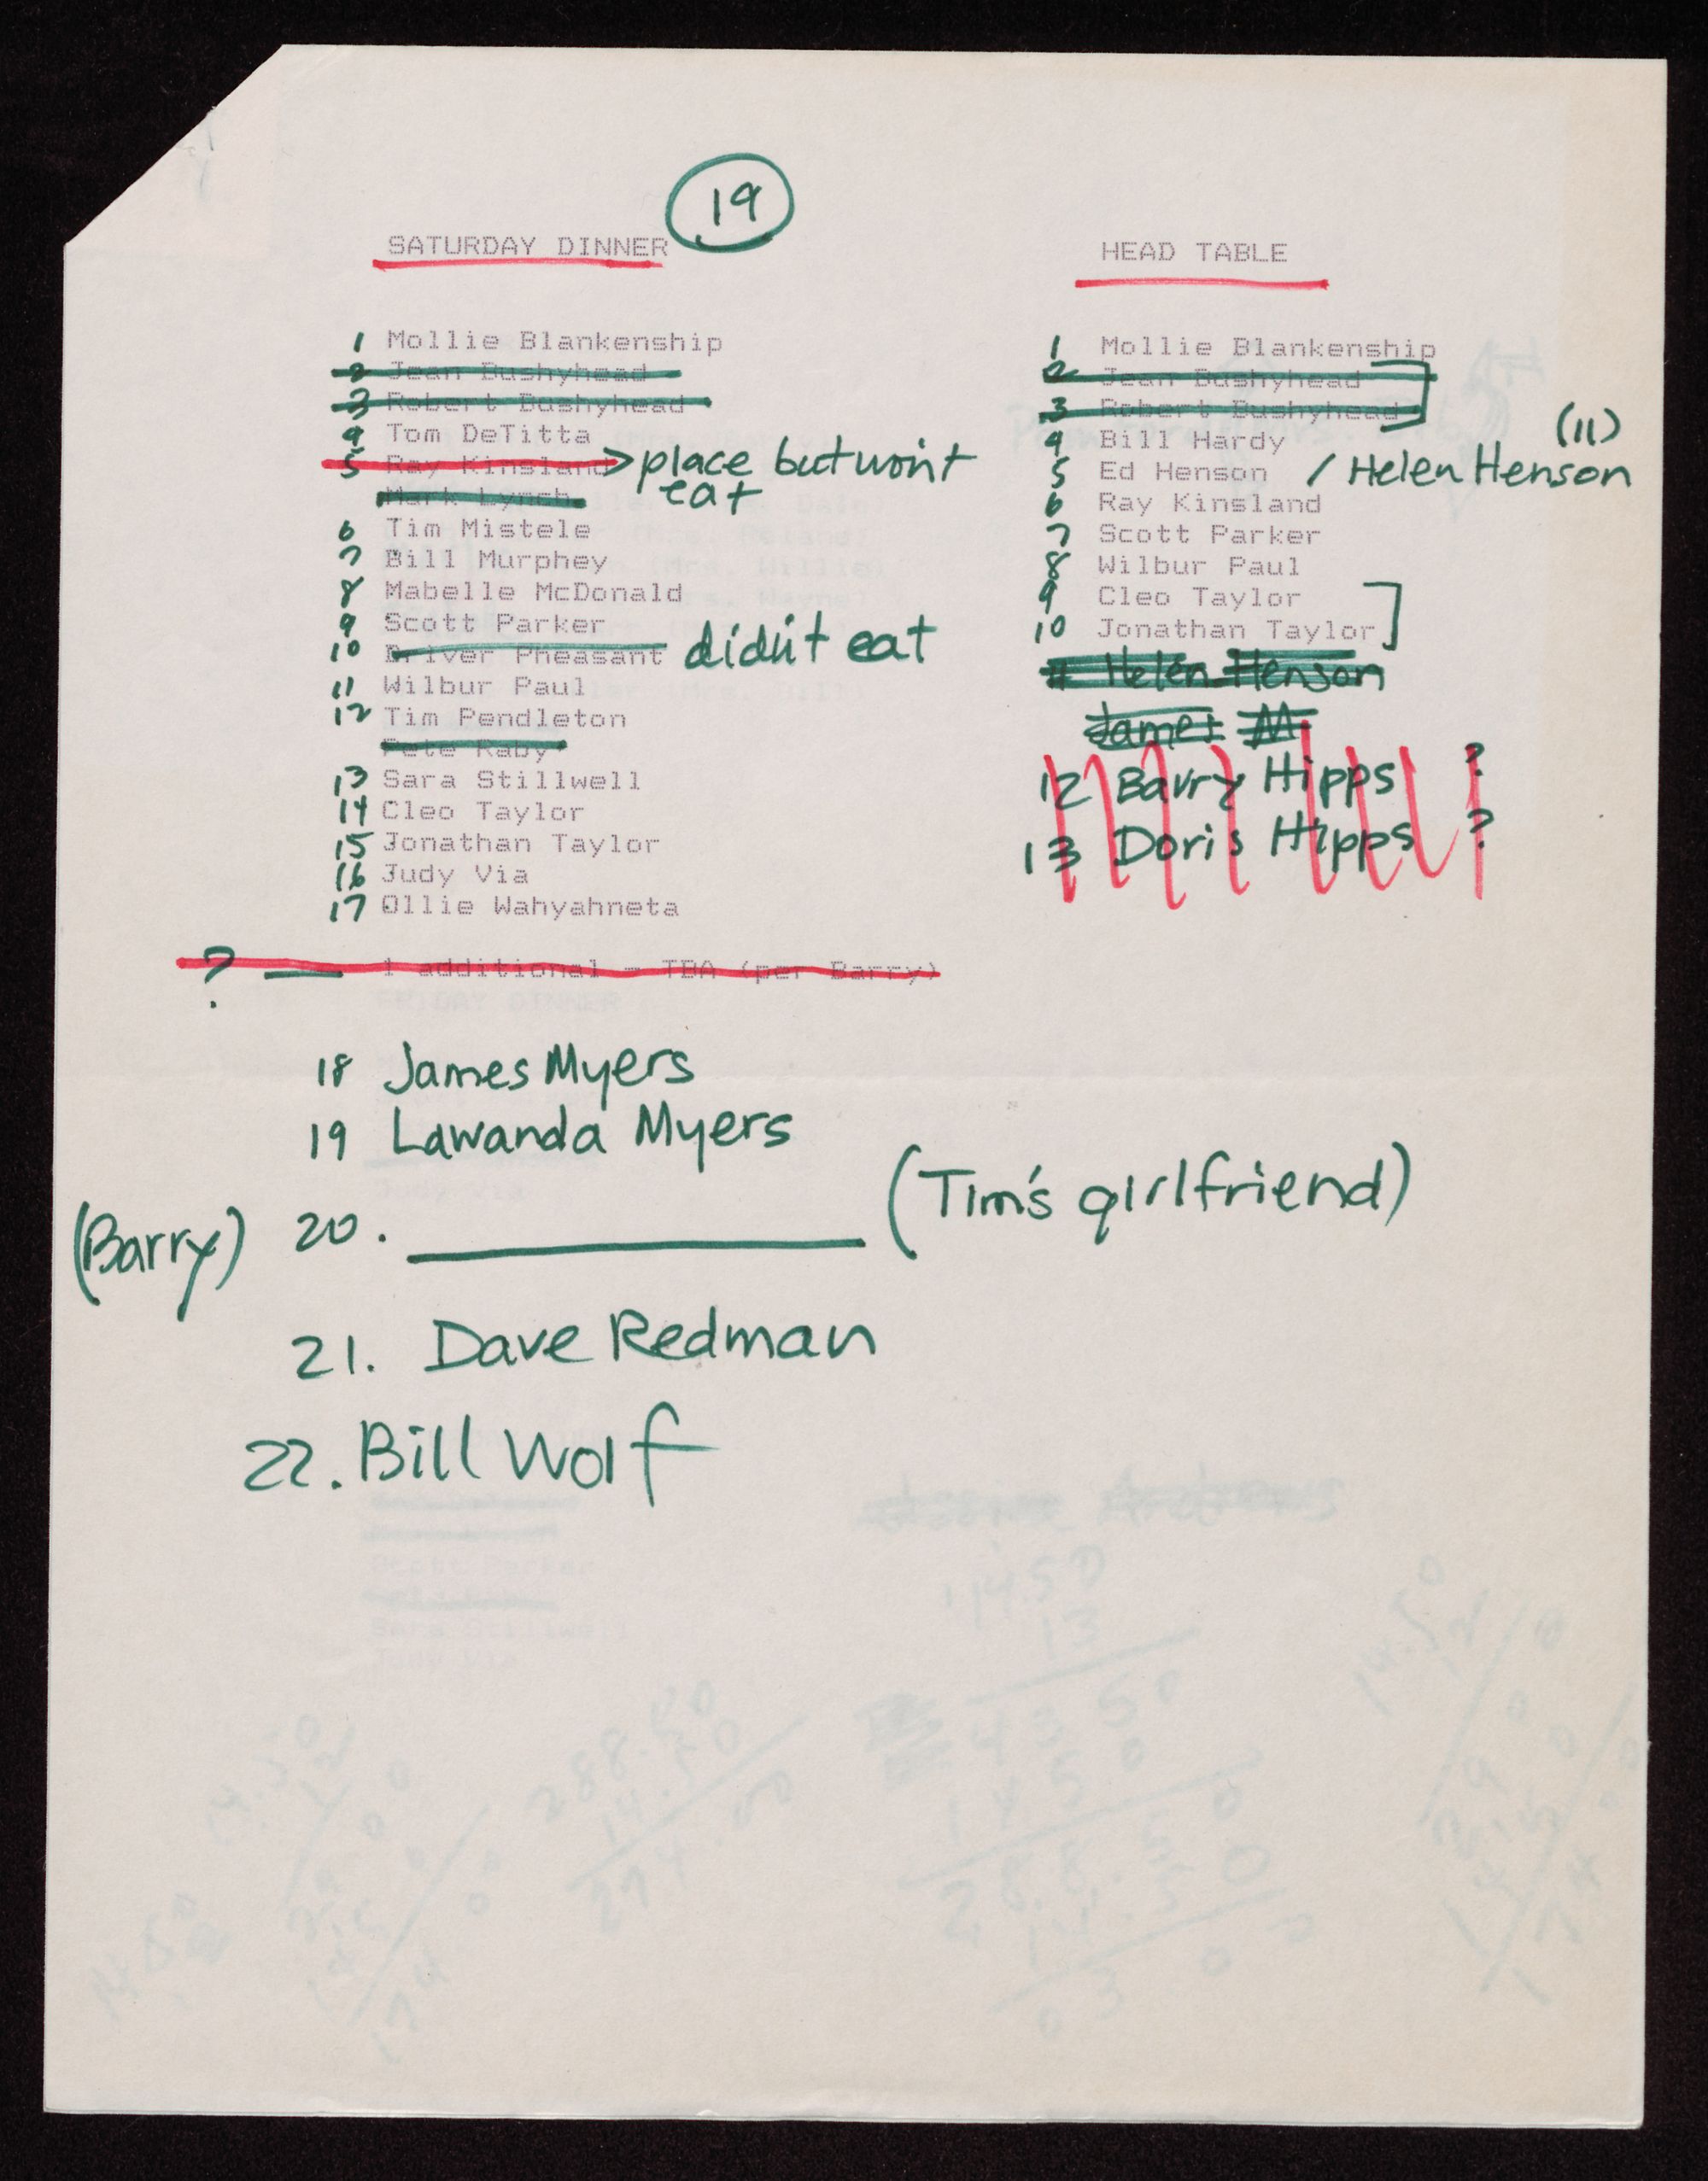 19
SATURDAY DINNER
1 Mollie Blankenship
2 Jean Bushyhead
3 Robert Bushyhead
4 Tom DeTitta
5 Ray Kinsland > place but won't eat
Mark Lynch
6 Tim Mistele
7 Bill Murphey
8 Mabelle McDonald
9 Scott Parker
10 Driver Pheasant didn't eat
11 Wilbur Paul
12 Tim Pendleton
Pete Raby
13 Sara Stillwell
14 Cleo Taylor
15 Jonathan Taylor
16 Judy Via
17 Ollie Wahyahneta
? — 1 additional - TBA (per Barry)
18 James Myers
19 Lawanda Myers
(Barry) 20. ________ (Tim's girlfriend)
21. Dave Redman
22. Bill Wolf
HEAD TABLE
1 Mollie Blankenship
2 Jean Bushyhead
3 Robert Bushyhead
4 Bill Hardy
(11)
5 Ed Henson / Helen Henson
6 Ray Kinsland
7 Scott Parker
8 Wilbur Paul
9 Cleo Taylor
10 Jonathan Taylor
11 Helen Henson
James M
12 Barry Hipps ?
13 Doris Hipps ?